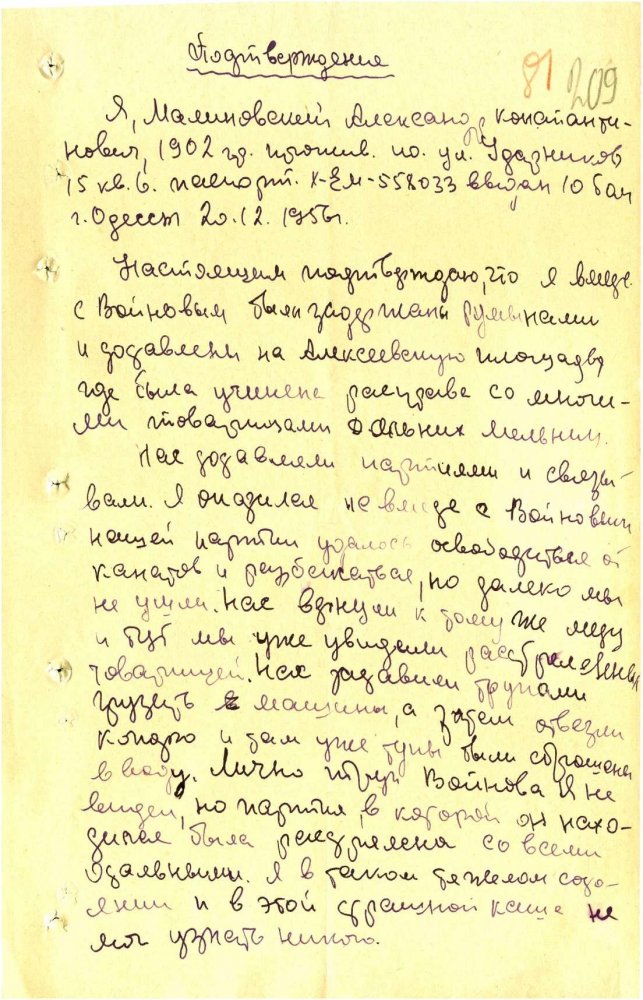 Подтверждение
81 209
Я, Малиновский Александр Константи-
нович, 1902 гр. прожив. по. ул. Ударников
15 кв. 6. паспорт. X-ЕМ-558033 выдан 10 
г. Одессы 20.12.1956г.
Настоящим подтверждаю, что я вместе
с Войновым были задержаны румынами
и доставлены на Алексеевскую площадь,
где была учинена расправа со многи-
ми товарищами Дальних Мельниц.
Нас доставляли партиями и связы-
вали. Я оказался не вместе с Войновым
нашей партии удалось освободиться от
канатов и разбежаться, но далеко мы
не ушли. Нас вернули к тому же месту
и тут мы уже увидели расстрелянных
товарищей. Нас заставили трупами
грузить машины, а затем отвезли
и там уже трупы были сброшены
в воду. Лично труп Войнова я не
видел, но партия, в которой он нахо-
дился была расстреляна со всеми
остальными. Я в таком тяжелом состо-
янии и в этой страшной каше не
мог узнать никого.